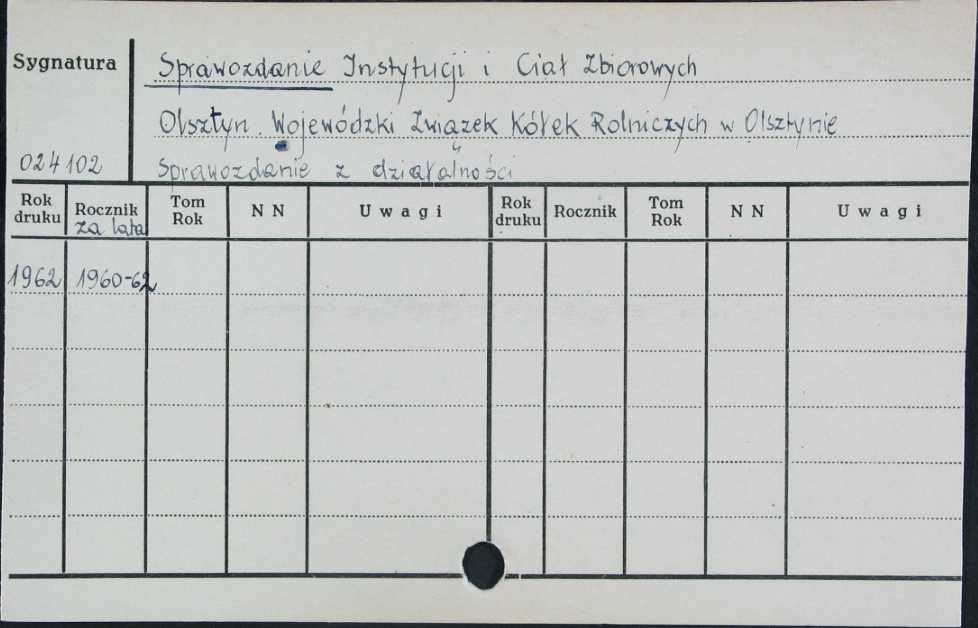 Sygnatura
Sprawozdanie Instytucji i Ciał Zbiorowych
Olsztyn. Wojewódzki Związek Kółek Rolniczych w Olsztynie
024102
Sprawozdanie z działalności
Rok druku Rocznik za lata Tom Rok N N Uwagi Rok druku Rocznik Tom Rok N N Uwagi
1962 1960-62